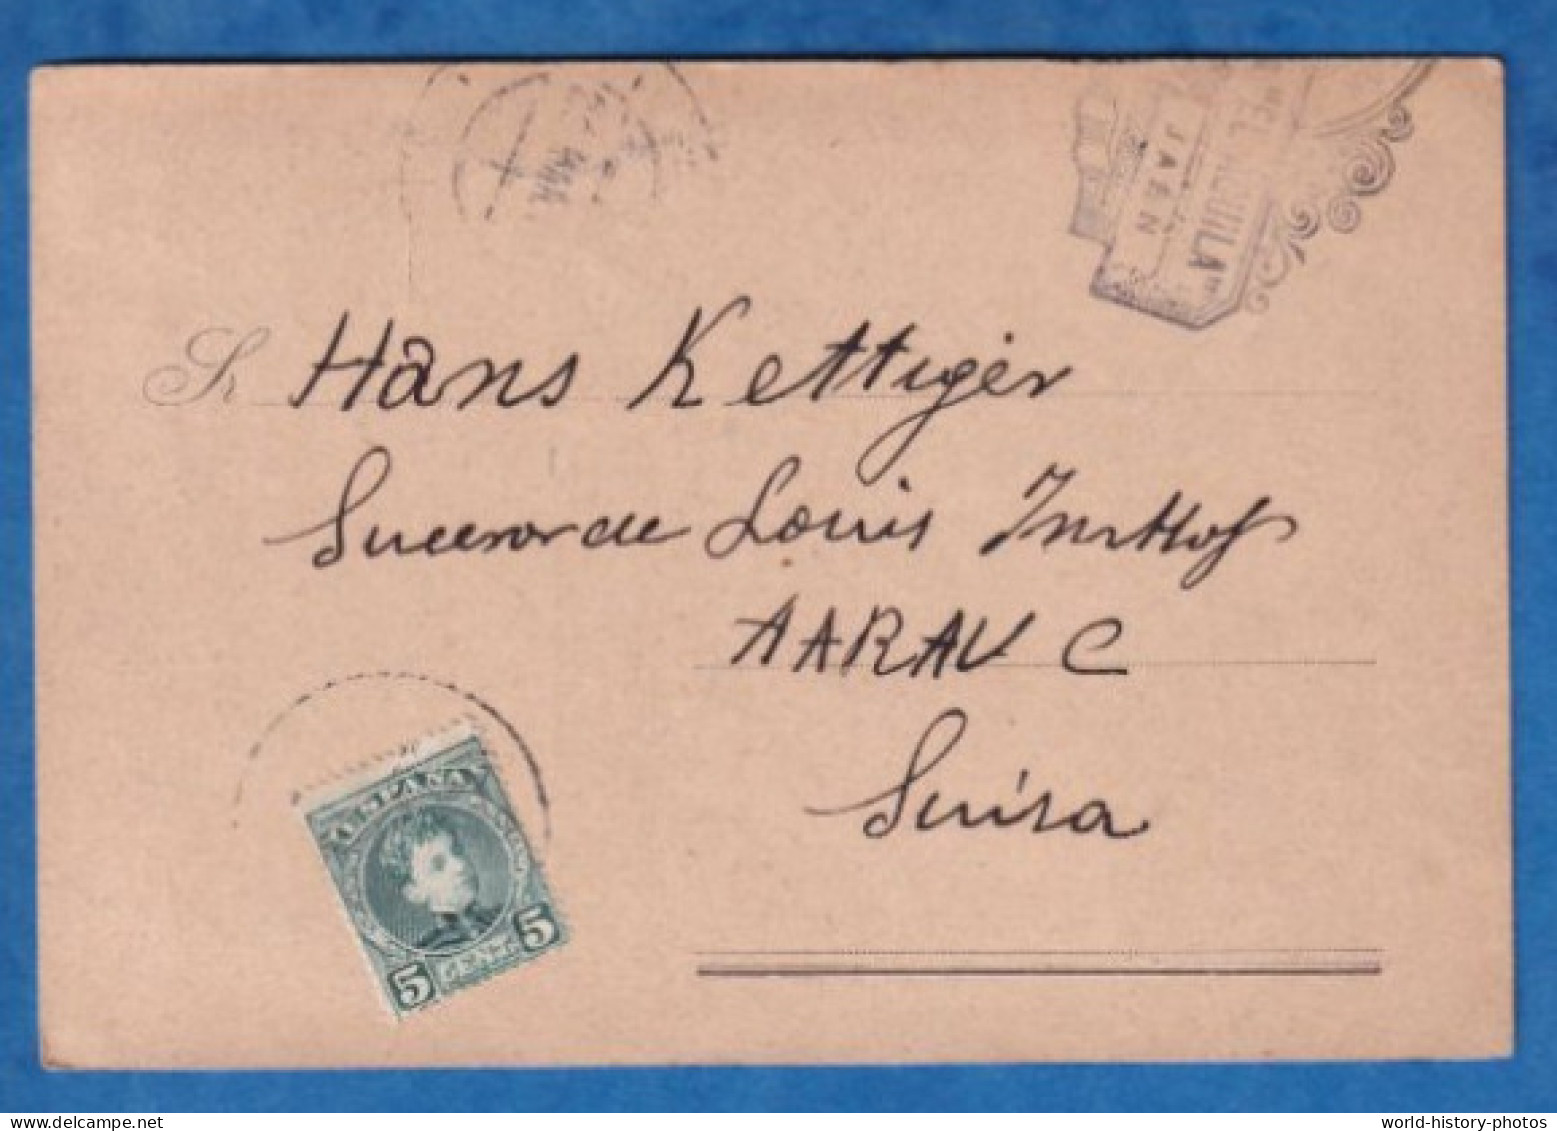 "EL AGUILA"
JAÉN
Sr Hans Kettiger
Sucesor de Louis Imhof
AARAU C
Suisa
ESPAÑA
5 CENT. 5
www.delcampe.net
world-history-photos